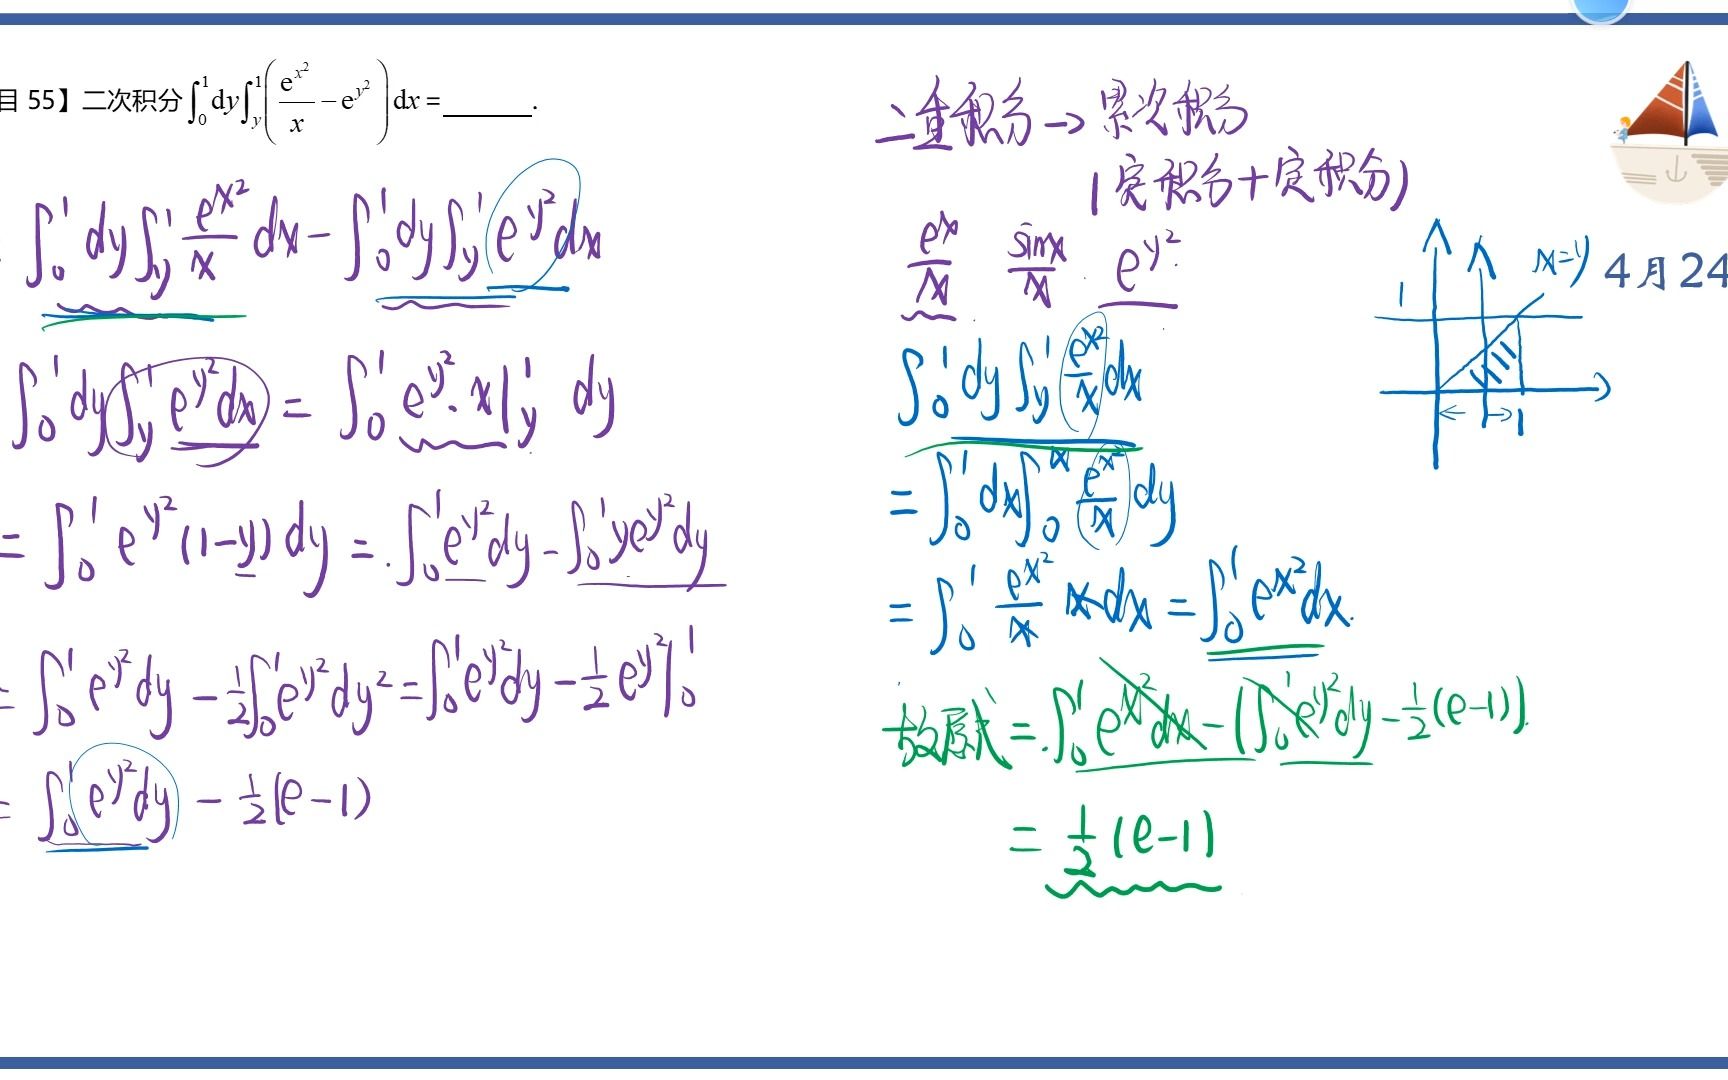 目 55】二次积分∫₀¹dy∫_y¹(e^{x²}/x − e^{y²})dx = ______.
∫₀¹dy∫_y¹ e^{x²}/x dx − ∫₀¹dy∫_y¹ e^{y²}dx
∫₀¹dy∫_y¹ e^{y²}dx = ∫₀¹ e^{y²}·x|_y¹ dy
= ∫₀¹ e^{y²}(1−y)dy = ∫₀¹e^{y²}dy − ∫₀¹ye^{y²}dy
= ∫₀¹e^{y²}dy − 1/2∫₀¹e^{y²}dy² = ∫₀¹e^{y²}dy − 1/2 e^{y²}|₀¹
= ∫₀¹e^{y²}dy − 1/2(e−1)
二重积分→累次积分
(定积分+定积分)
e^x/x sinx/x e^{y²}
∫₀¹dy∫_y¹ e^{x²}/x dx
= ∫₀¹dx∫₀^x e^{x²}/x dy
= ∫₀¹ e^{x²}/x x dx = ∫₀¹e^{x²}dx.
故原式 = ∫₀¹e^{x²}dx − (∫₀¹e^{y²}dy − 1/2(e−1)).
= 1/2(e−1)
x=y
1
1
4月24